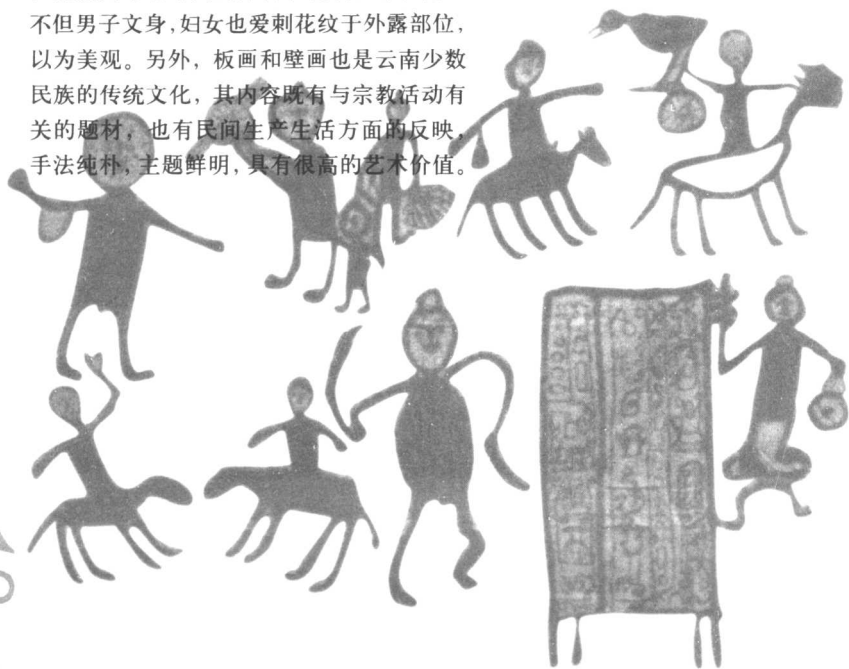 不但男子文身,妇女也爱刺花纹于外露部位,
以为美观。另外, 板画和壁画也是云南少数
民族的传统文化, 其内容既有与宗教活动有
关的题材, 也有民间生产生活方面的反映,
手法纯朴, 主题鲜明, 具有很高的艺术价值。